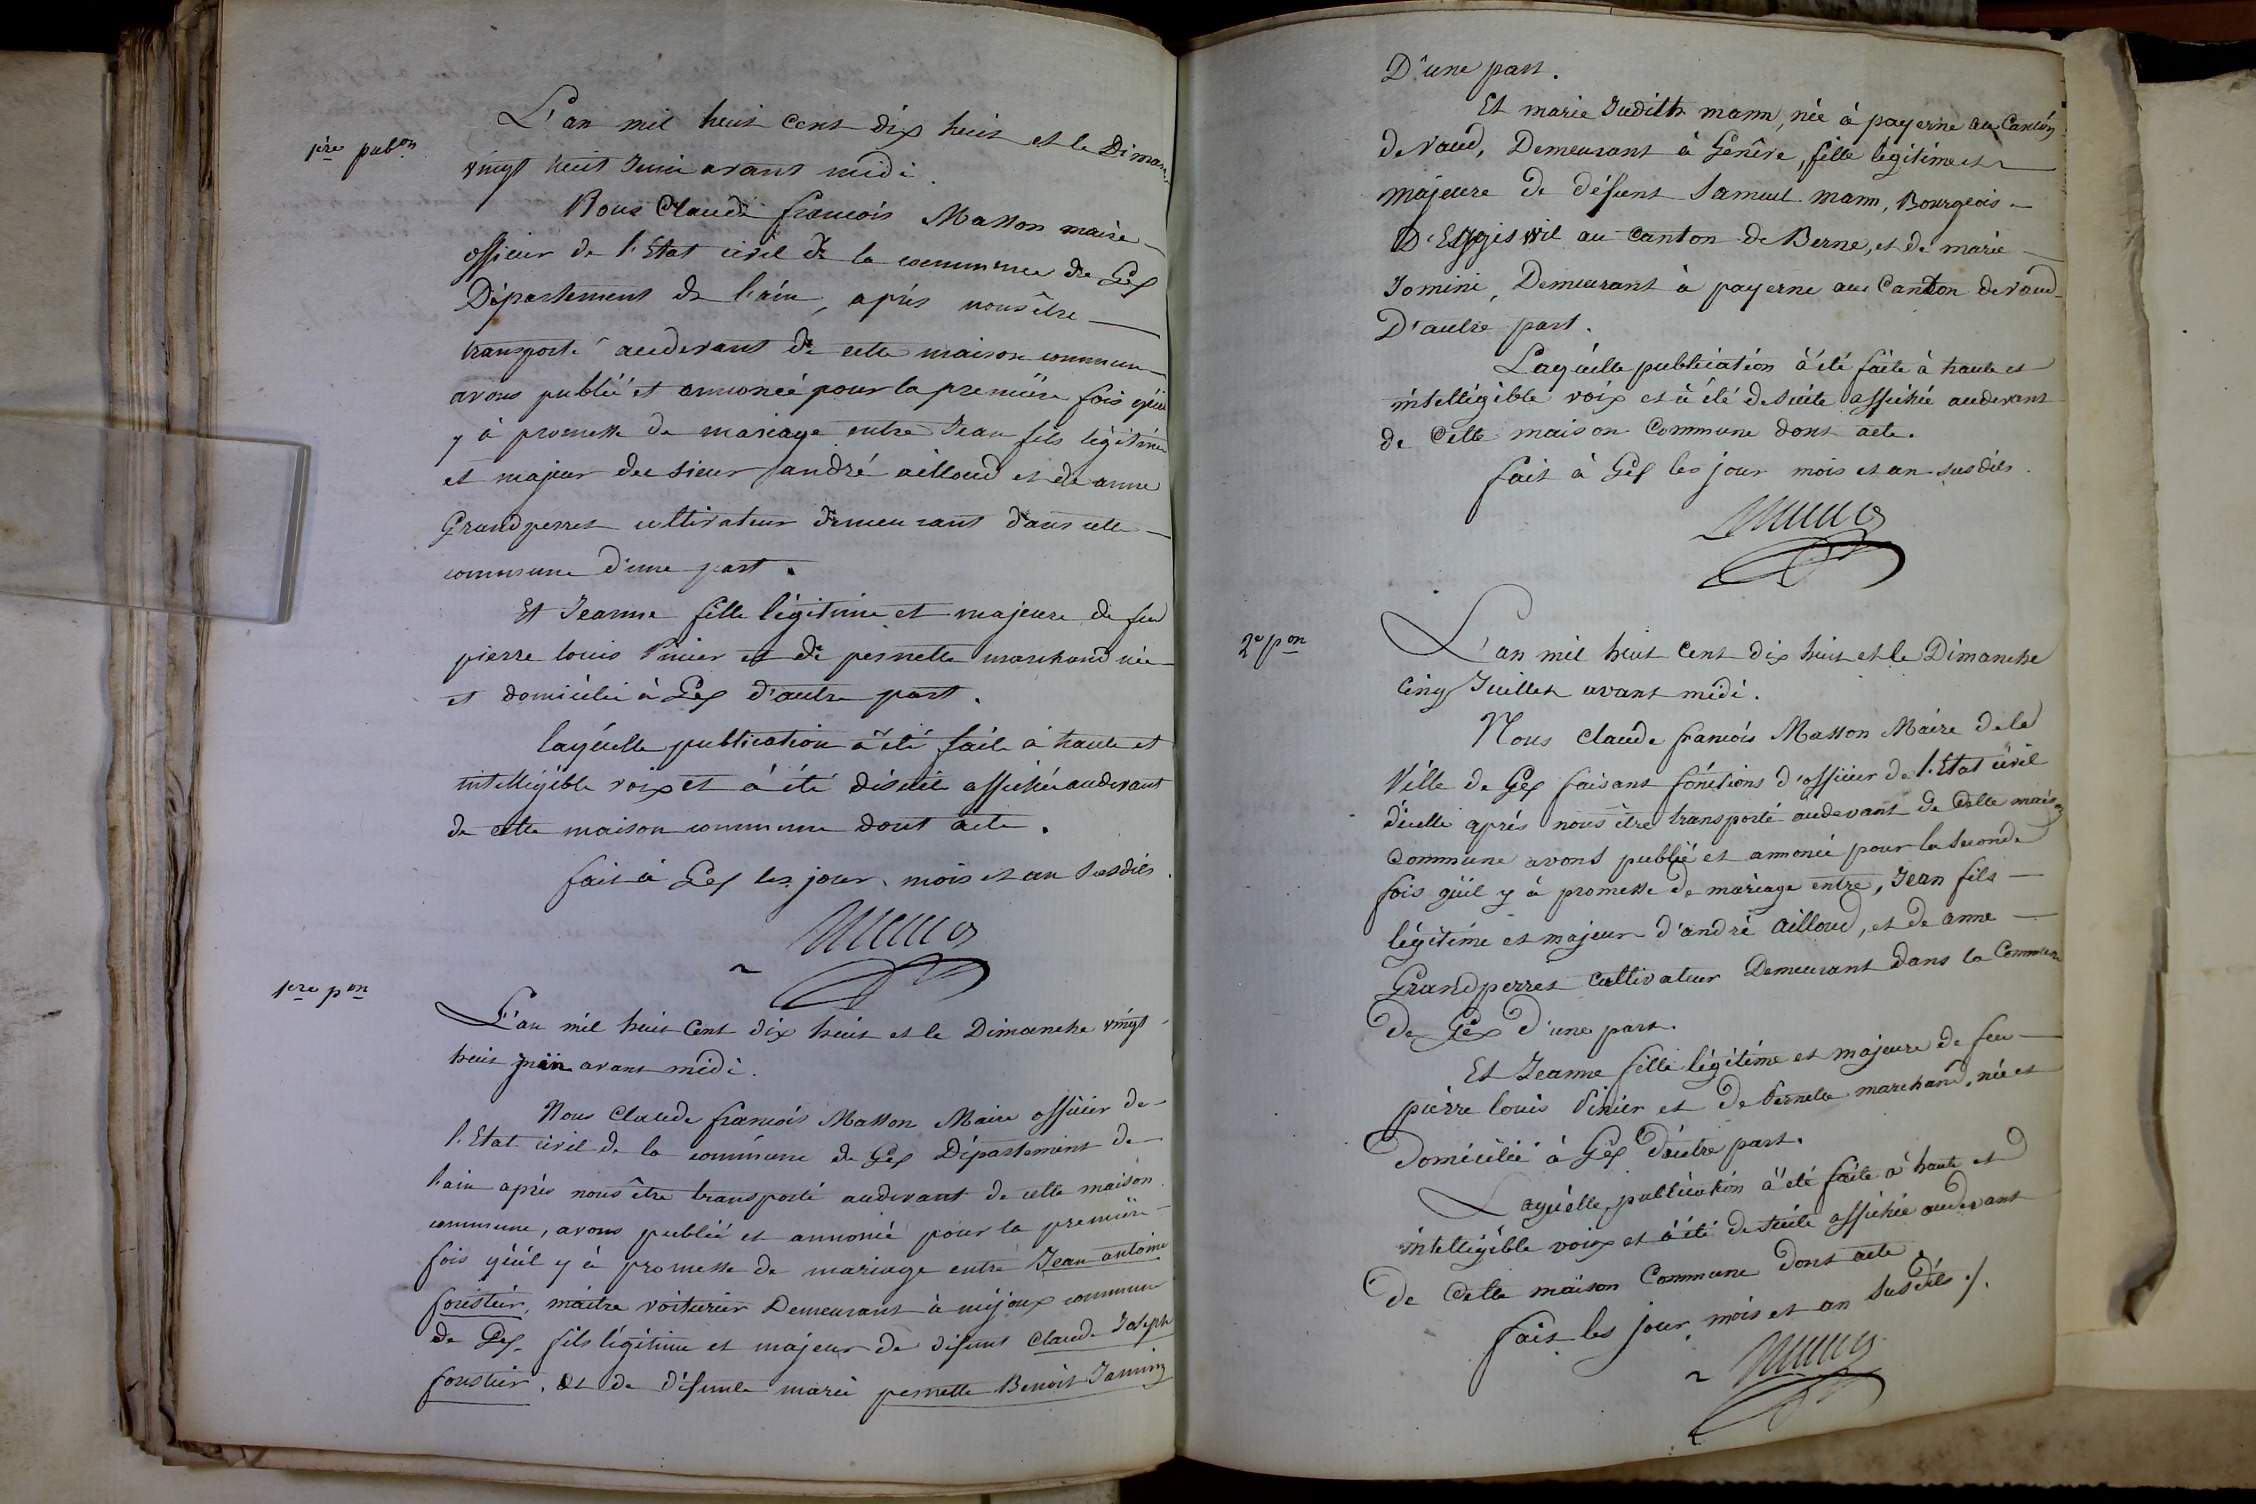 1ère pubon
L'an mil huit cent dix huit et le Diman
vingt huit Juin avant midi.
Nous Claude francois Masson maire
officier de l'Etat civil de la commune de Gex
Département de l'ain, après nous être
transporté audevant de cette maison commune
avons publié et annoncé pour la première fois qu'il
y à promesse de mariage entre Jean fils légitime
et majeur du sieur andré ailloud et de anne
Grandperret cultivateur demeurant dans cette
commune d'une part.
Et Jeanne fille légitime et majeure de feu
pierre louis Vinier et de pernette marchand née
et domiciliée à Gex d'autre part.
laquelle publication à été faite à haute et
intelligible voix et à été desuite affichée audevant
de cette maison commune dont acte.
fait à Gex les jour, mois et an susdits.
1ere pon
L'an mil huit Cent dix huit et le Dimanche vingt
huit juin avant midi.
Nous Claude francois Masson Maire officier de
l'Etat civil de la commune de Gex Département de
l'ain après nous être transporté audevant de cette maison
commune, avons publié et annoncé pour la première
fois qu'il y à promesse de mariage entre Jean antoine
foustier, maitre voiturier Demeurant à mijoux commune
de Gex fils légitime et majeur de défunt Claude Joseph
foustier, et de défunte marie pernette Benoit Jannin
D'une part.
Et marie Judith mann, née à payerne au Canton
de vaud, Demeurant à Genève, fille légitime et
majeure de défunt Samuel mann, Bourgeois
D'Eggiswil au Canton de Berne, et de marie
Jomini, Demeurant à payerne au Canton de vaud
D'autre part.
Laquelle publication à été faite à haute et
intelligible voix et à été desuite affichée audevant
de Cette maison Commune dont acte.
fait à Gex les jour mois et an susdits.
2e pon
L'an mil huit Cent dix huit et le Dimanche
Cinq Juillet avant midi.
Nous Claude francois Masson Maire de la
Ville de Gex faisant fonctions d'officier de l'Etat civil
d'icelle après nous être transporté audevant de Cette maison
Commune avons publié et annoncé pour la seconde
fois qu'il y à promesse de mariage entre, Jean fils
légitime et majeur d'andré ailloud, et de anne
Grandperret Cultivateur Demeurant dans la Commune
de Gex d'une part.
Et Jeanne fille légitime et majeure de feu
pierre louis Vinier et de Pernette marchand, née et
Domiciliée à Gex d'autre part.
Laquelle publication à été faite à haute et
intelligible voix et à été desuite affichée audevant
de Cette maison Commune dont acte.
fait les jour, mois et an susdits ./.